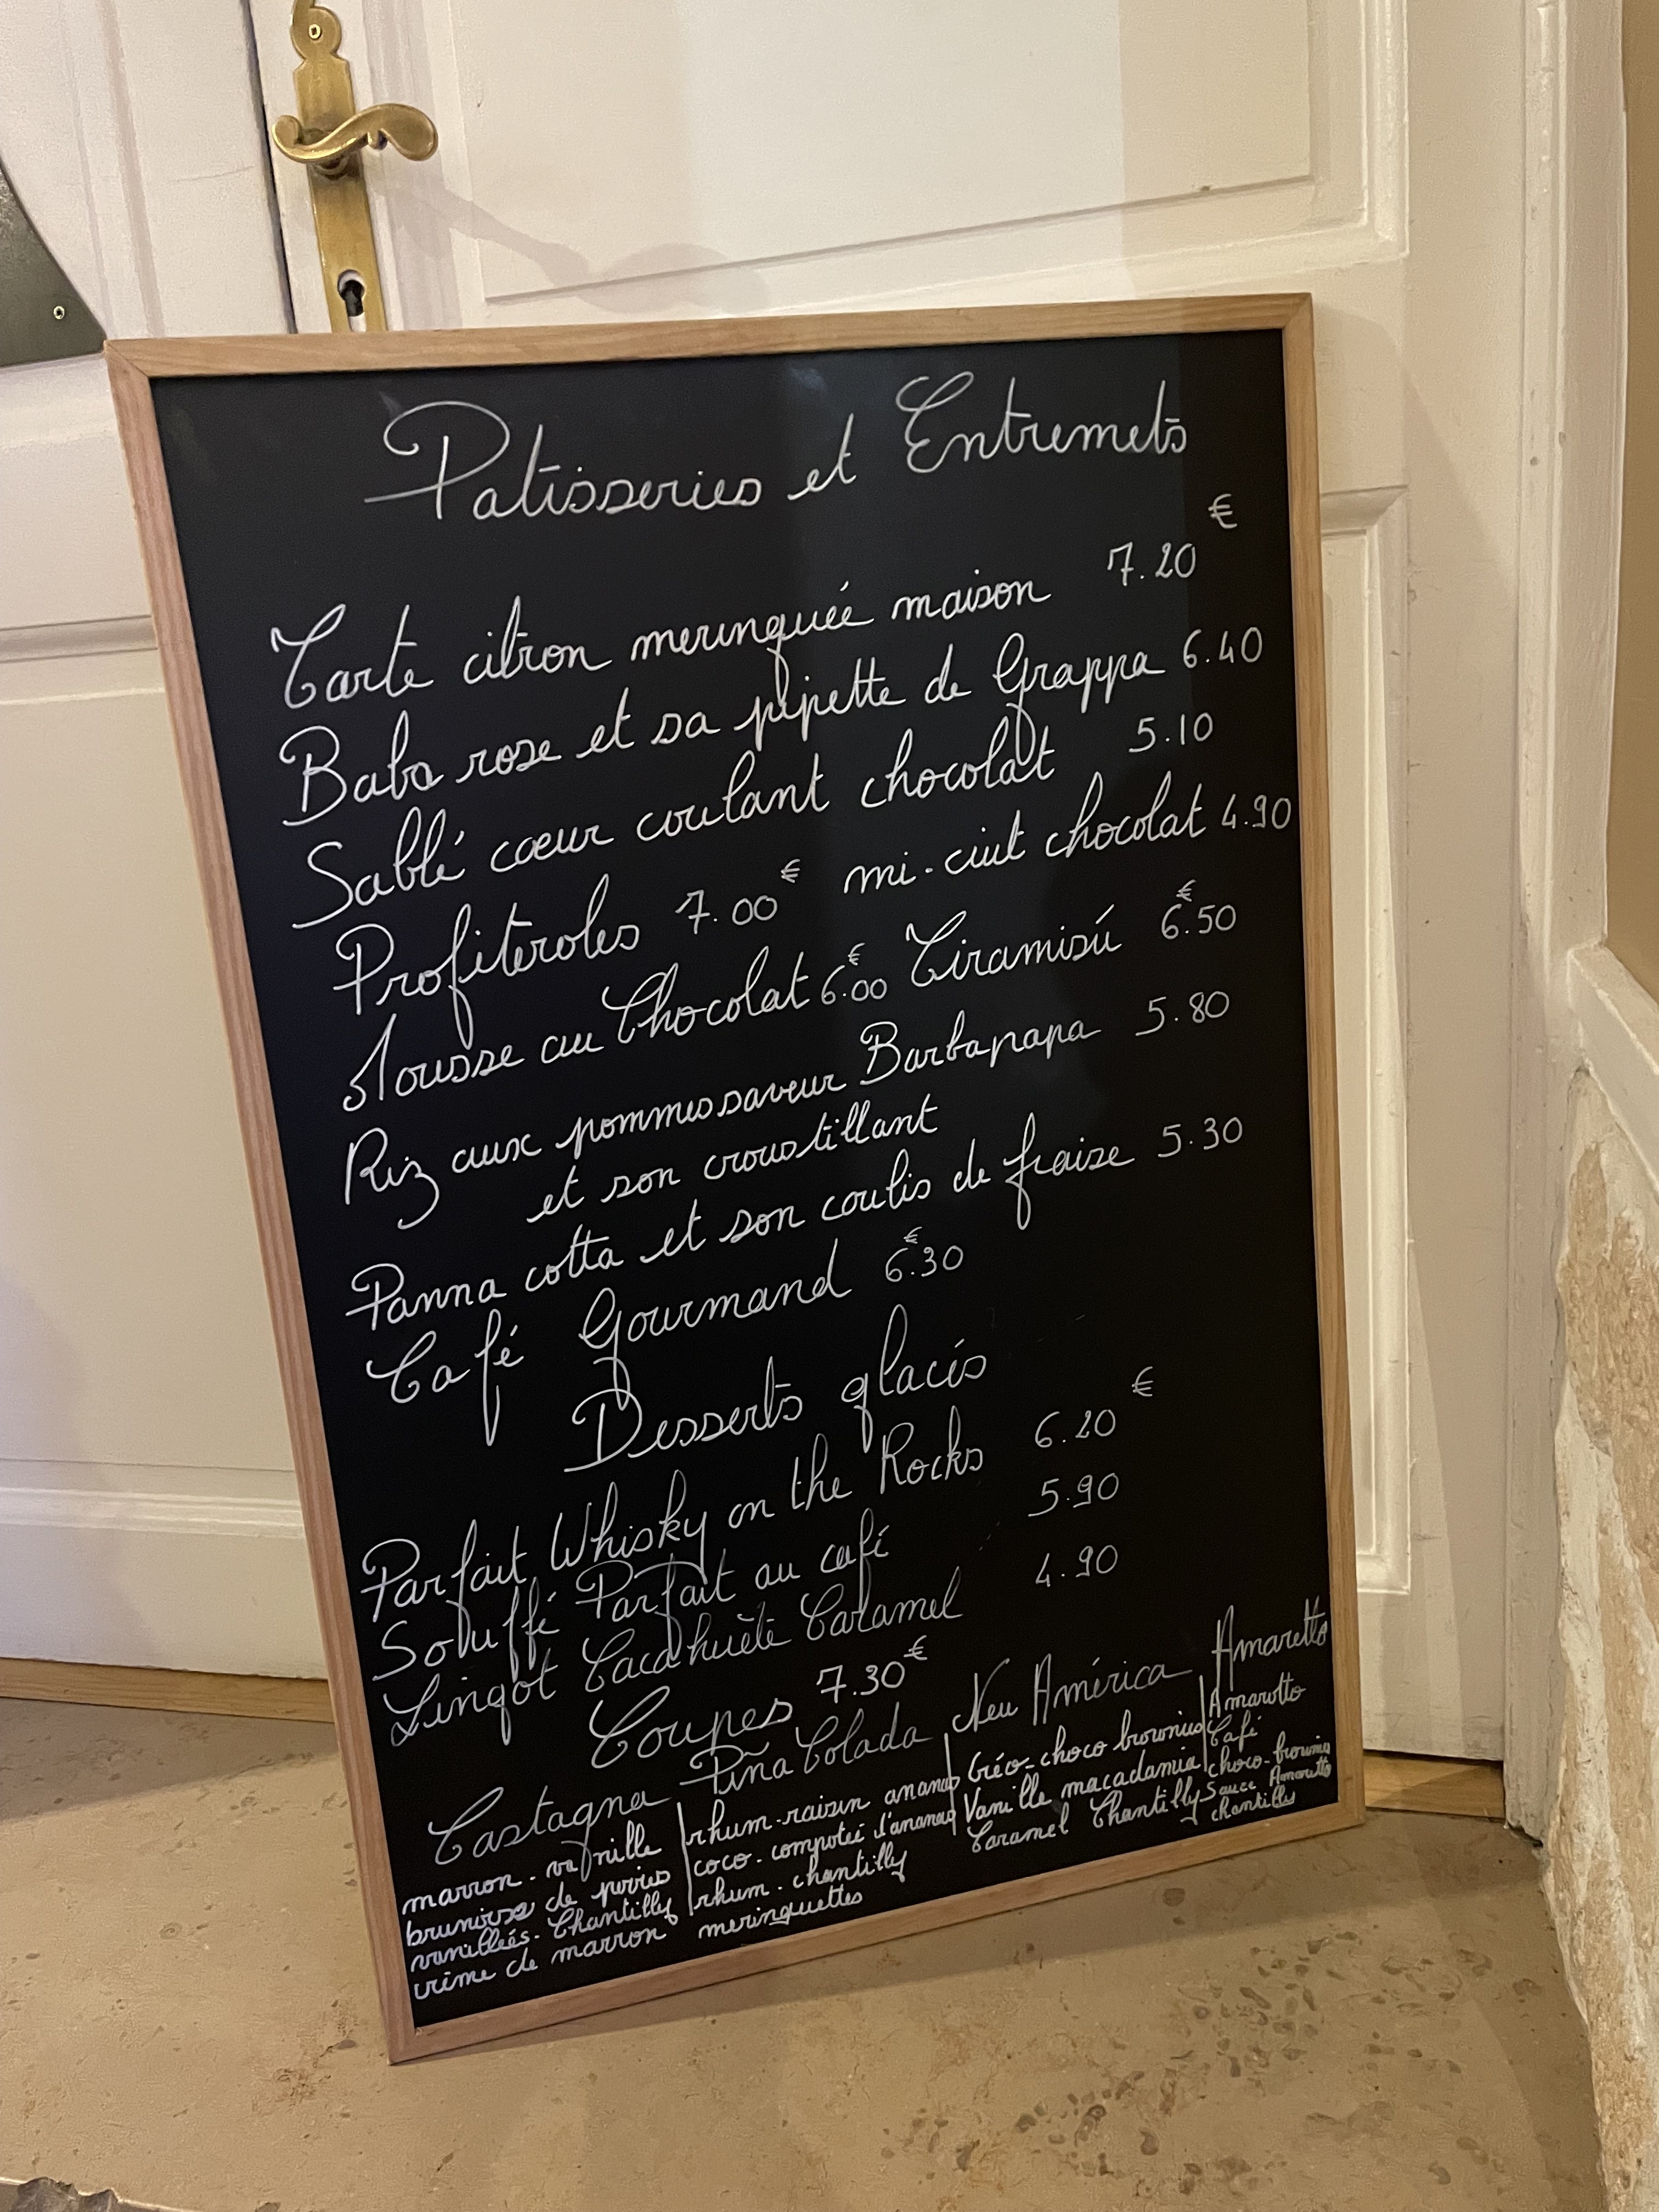 Patisseries et Entremets
€
Tarte citron meringuée maison 7.20
Baba rose et sa pipette de Grappa 6.40
Sablé cœur coulant chocolat 5.10
Profiteroles 7.00€ mi-cuit chocolat 4.90
Mousse au Chocolat 6.00€ Tiramisú 6.50€
Riz aux pommes saveur Barbapapa 5.80
et son croustillant
Panna cotta et son coulis de fraise 5.30
Café Gourmand 6.30€
Desserts glacés
€
Parfait Whisky on the Rocks 6.20
Soufflé Parfait au café 5.90
Lingot Cacahuète Caramel 4.90
Coupes 7.30€
Castagna Piña Colada New América Amaretto
marron-vanille
brunoise de poires
vanillées-Chantilly
crème de marron
rhum-raisin ananas
coco-compotée d'ananas
rhum-chantilly
meringuettes
choco brownies
Vanille macadamia
Caramel Chantilly
Amaretto
Café
choco-brownie
Sauce Amaretto
chantilly